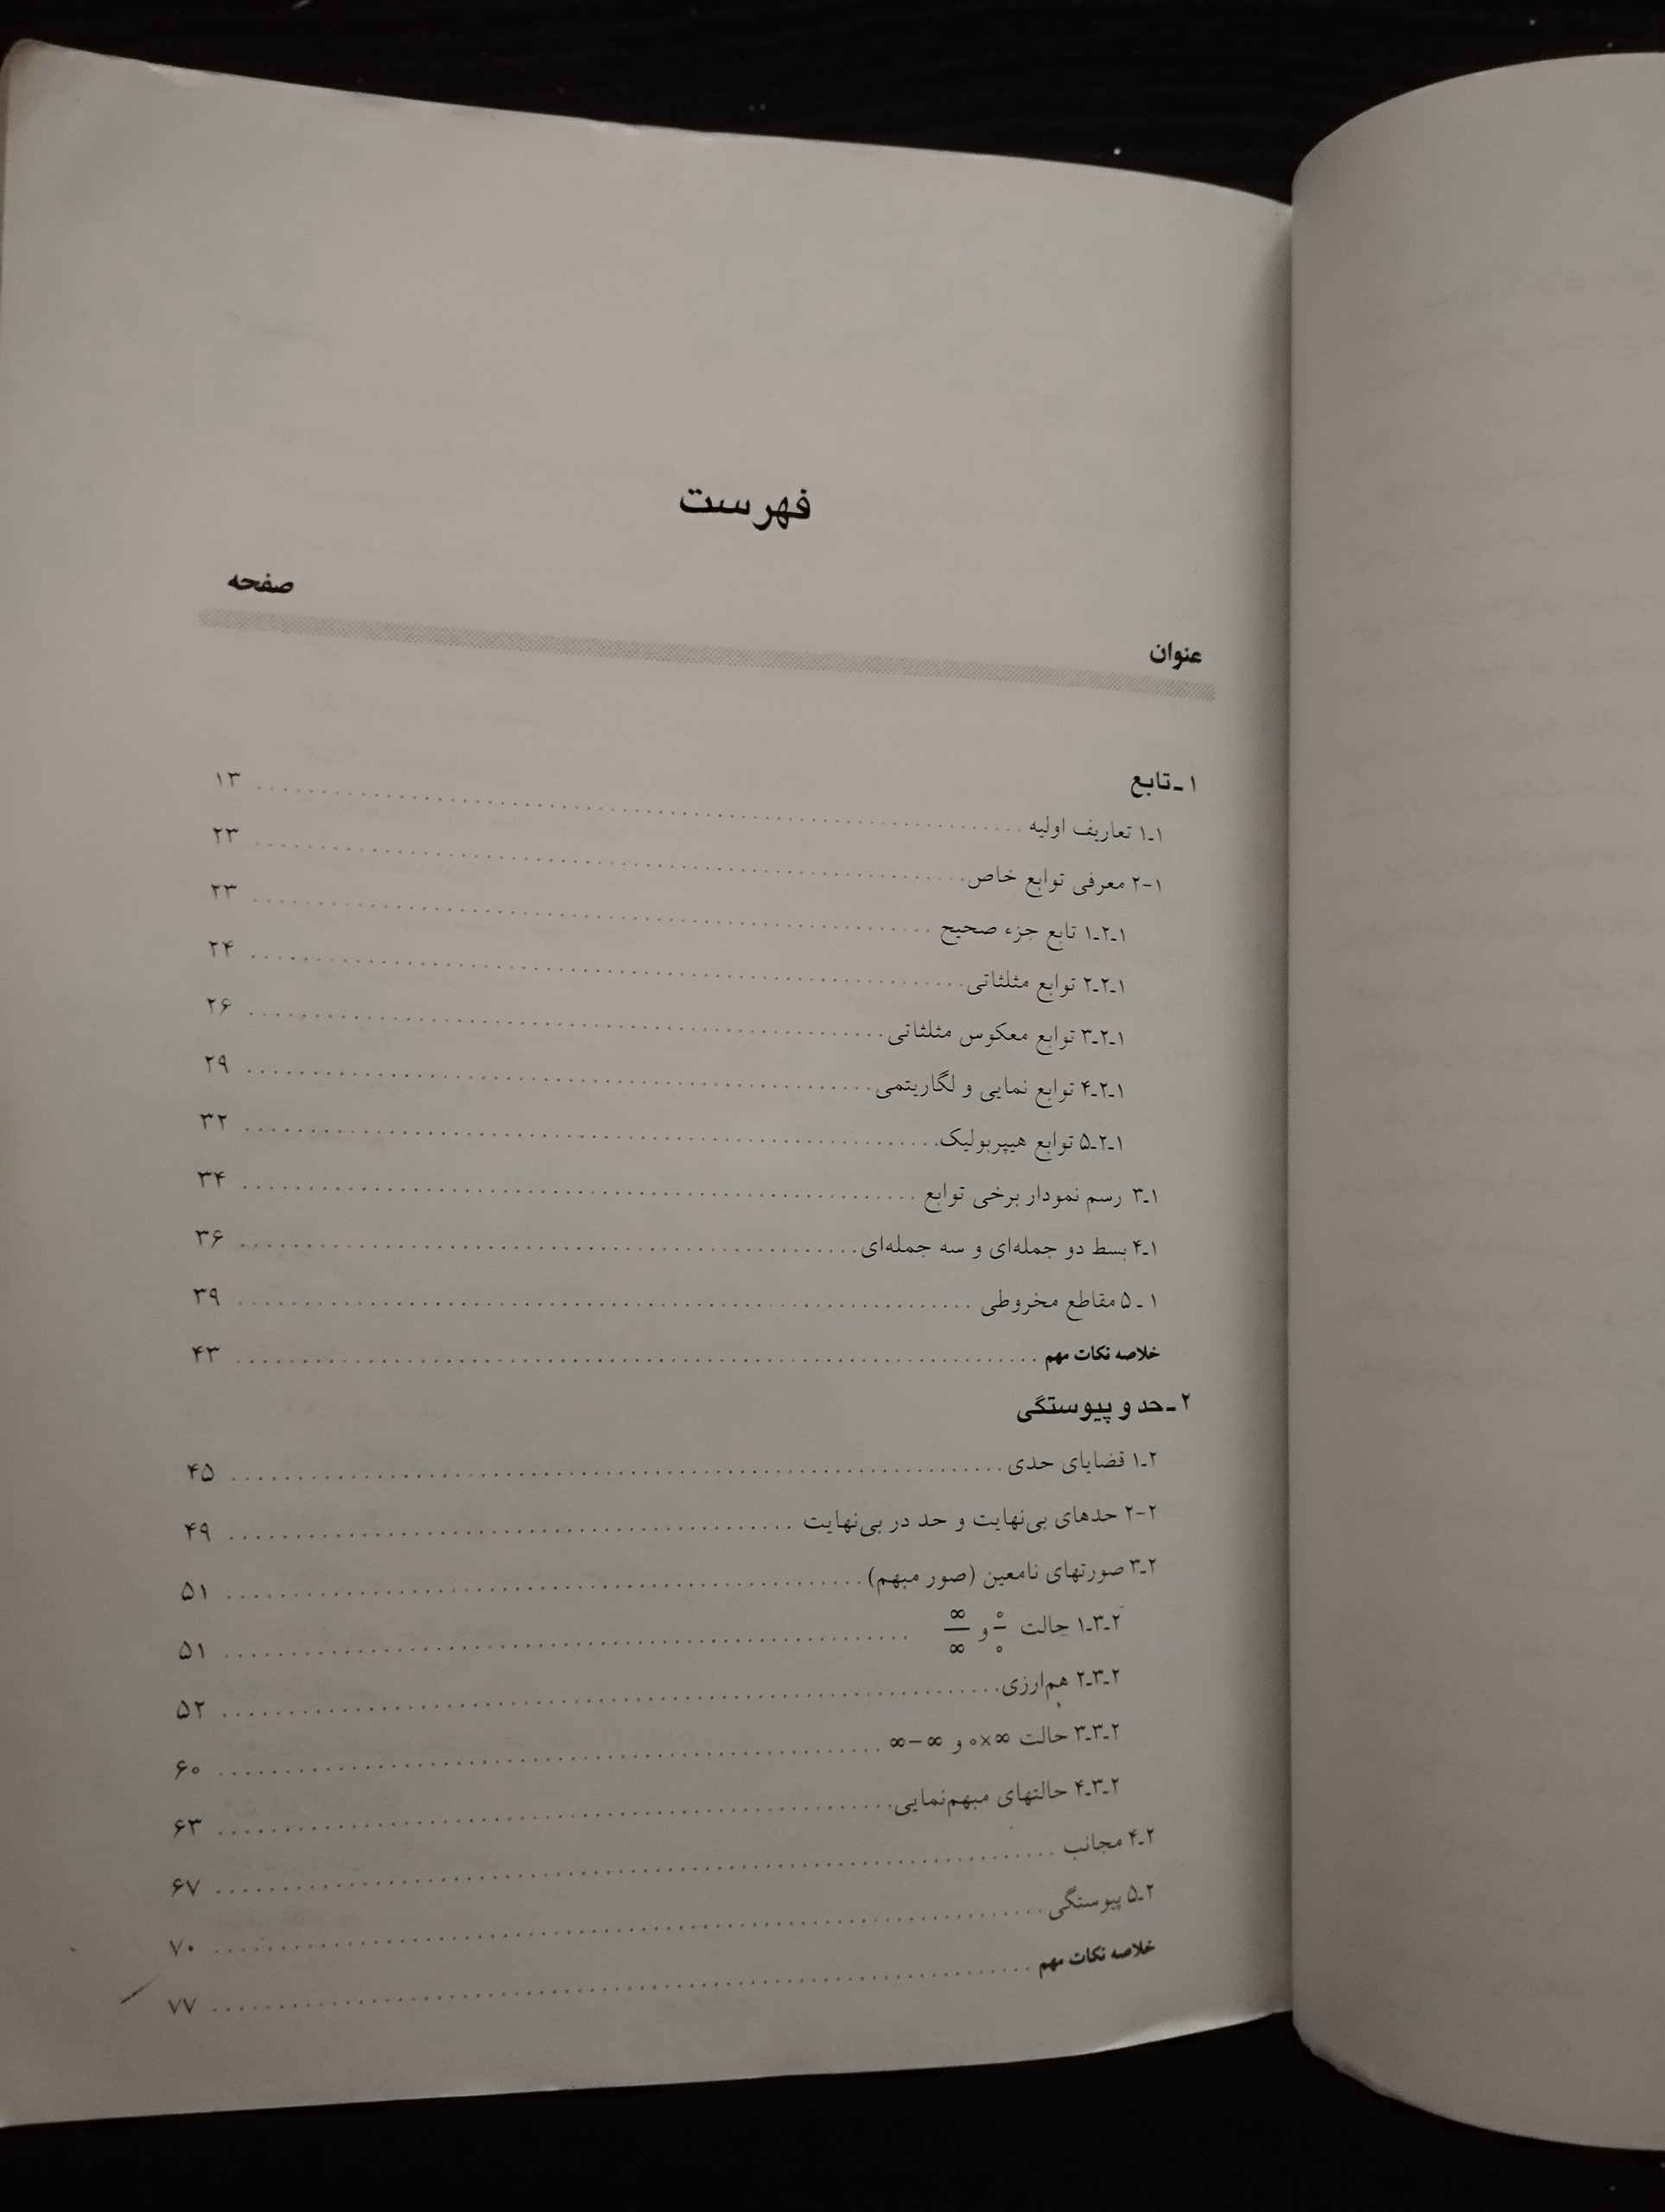 فهرست
صفحه
عنوان
۱ـ تابع
۱ـ۱ تعاریف اولیه ........ ۱۳
۱-۲ معرفی توابع خاص ........ ۲۳
۱ـ۲ـ۱ تابع جزء صحیح ........ ۲۳
۱ـ۲ـ۲ توابع مثلثاتی ........ ۲۴
۱ـ۲ـ۳ توابع معکوس مثلثاتی ........ ۲۶
۱ـ۲ـ۴ توابع نمایی و لگاریتمی ........ ۲۹
۱ـ۲ـ۵ توابع هیپربولیک ........ ۳۲
۱ـ۳ رسم نمودار برخی توابع ........ ۳۴
۱ـ۴ بسط دو جمله‌ای و سه جمله‌ای ........ ۳۶
۱ـ۵ مقاطع مخروطی ........ ۳۹
خلاصه نکات مهم ........ ۴۳
۲ـ حد و پیوستگی
۲ـ۱ قضایای حدی ........ ۴۵
۲-۲ حدهای بی‌نهایت و حد در بی‌نهایت ........ ۴۹
۲ـ۳ صورتهای نامعین (صور مبهم) ........ ۵۱
۲ـ۳ـ۱ حالت ۰/۰ و ∞/∞ ........ ۵۱
۲ـ۳ـ۲ هم‌ارزی ........ ۵۲
۲ـ۳ـ۳ حالت ∞×۰ و ∞−∞ ........ ۶۰
۲ـ۳ـ۴ حالتهای مبهم‌نمایی ........ ۶۳
۲ـ۴ مجانب ........ ۶۷
۲ـ۵ پیوستگی ........ ۷۰
خلاصه نکات مهم ........ ۷۷